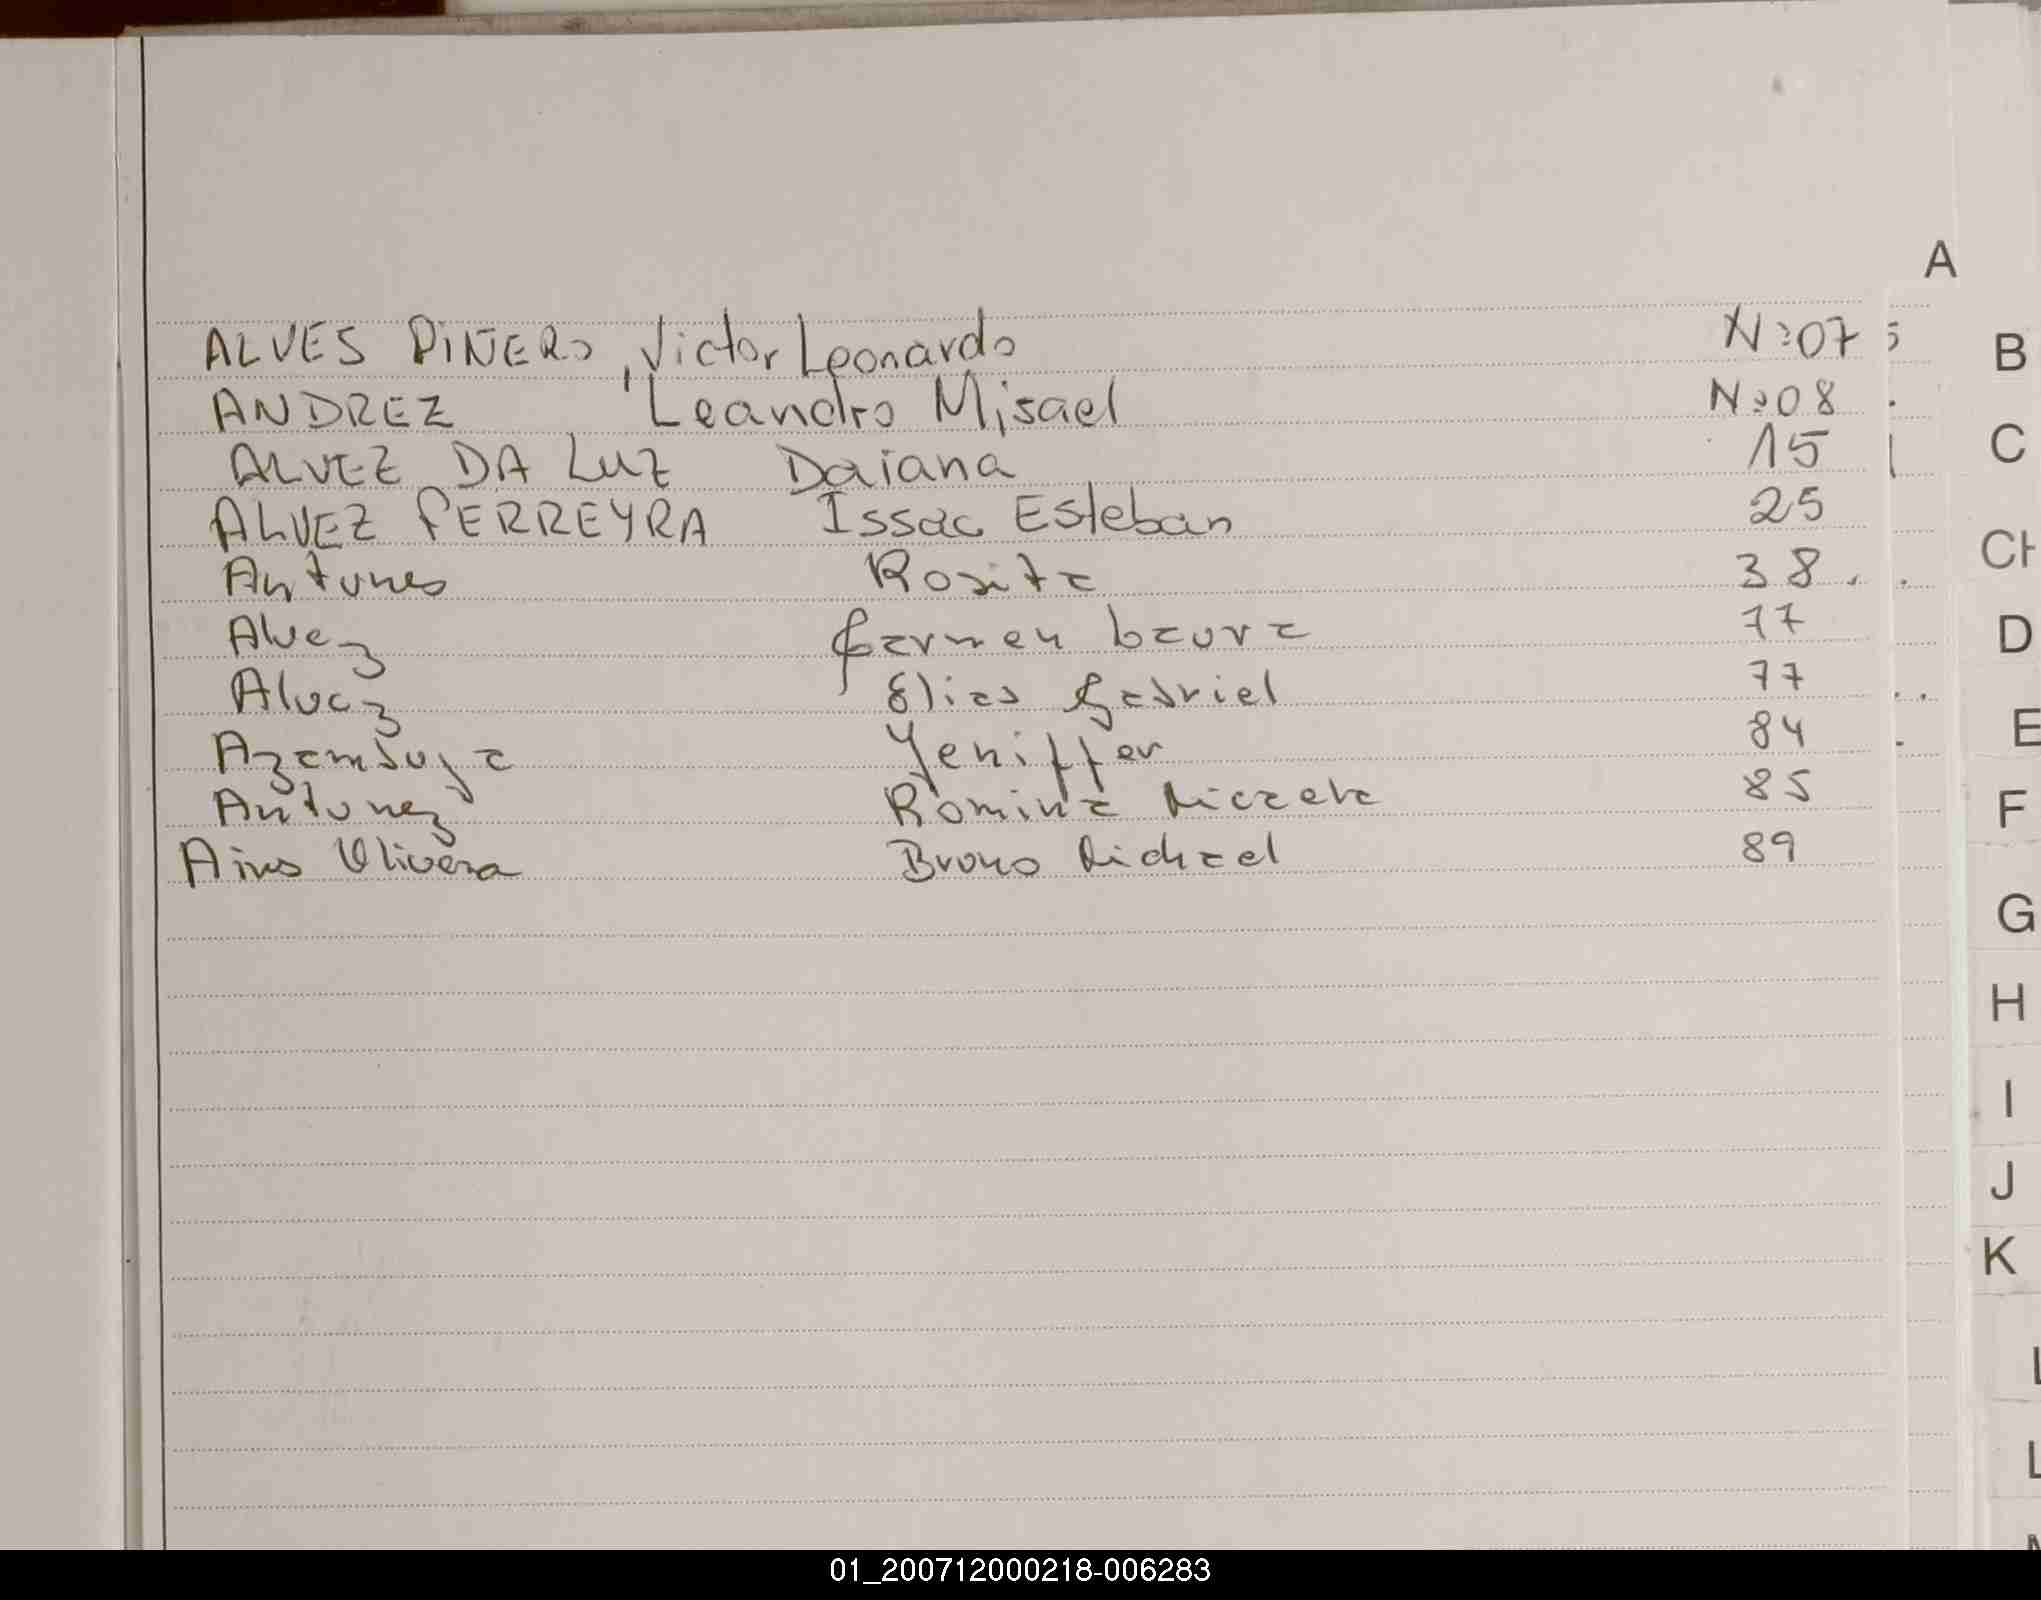 A
ALVES PIÑERO, Victor Leonardo N:07
ANDREZ Leandro Misael N:08
ALVEZ DA LUZ Daiana 15
ALVEZ FERREYRA Issac Esteban 25
Antunes Rosita 38
Alvez Carmen Laura 77
Alvez Elias Gabriel 77
Azambuya Yeniffer 84
Antunez Romina Micaela 85
Aires Olivera Bruno Michael 89
B
C
CH
D
E
F
G
H
I
J
K
L
L
01_200712000218-006283